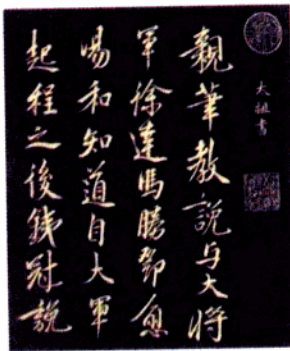 大祖書
親筆教說与大將
軍徐達馮勝鄧愈
湯和知道自大軍
起程之後鉄冠說